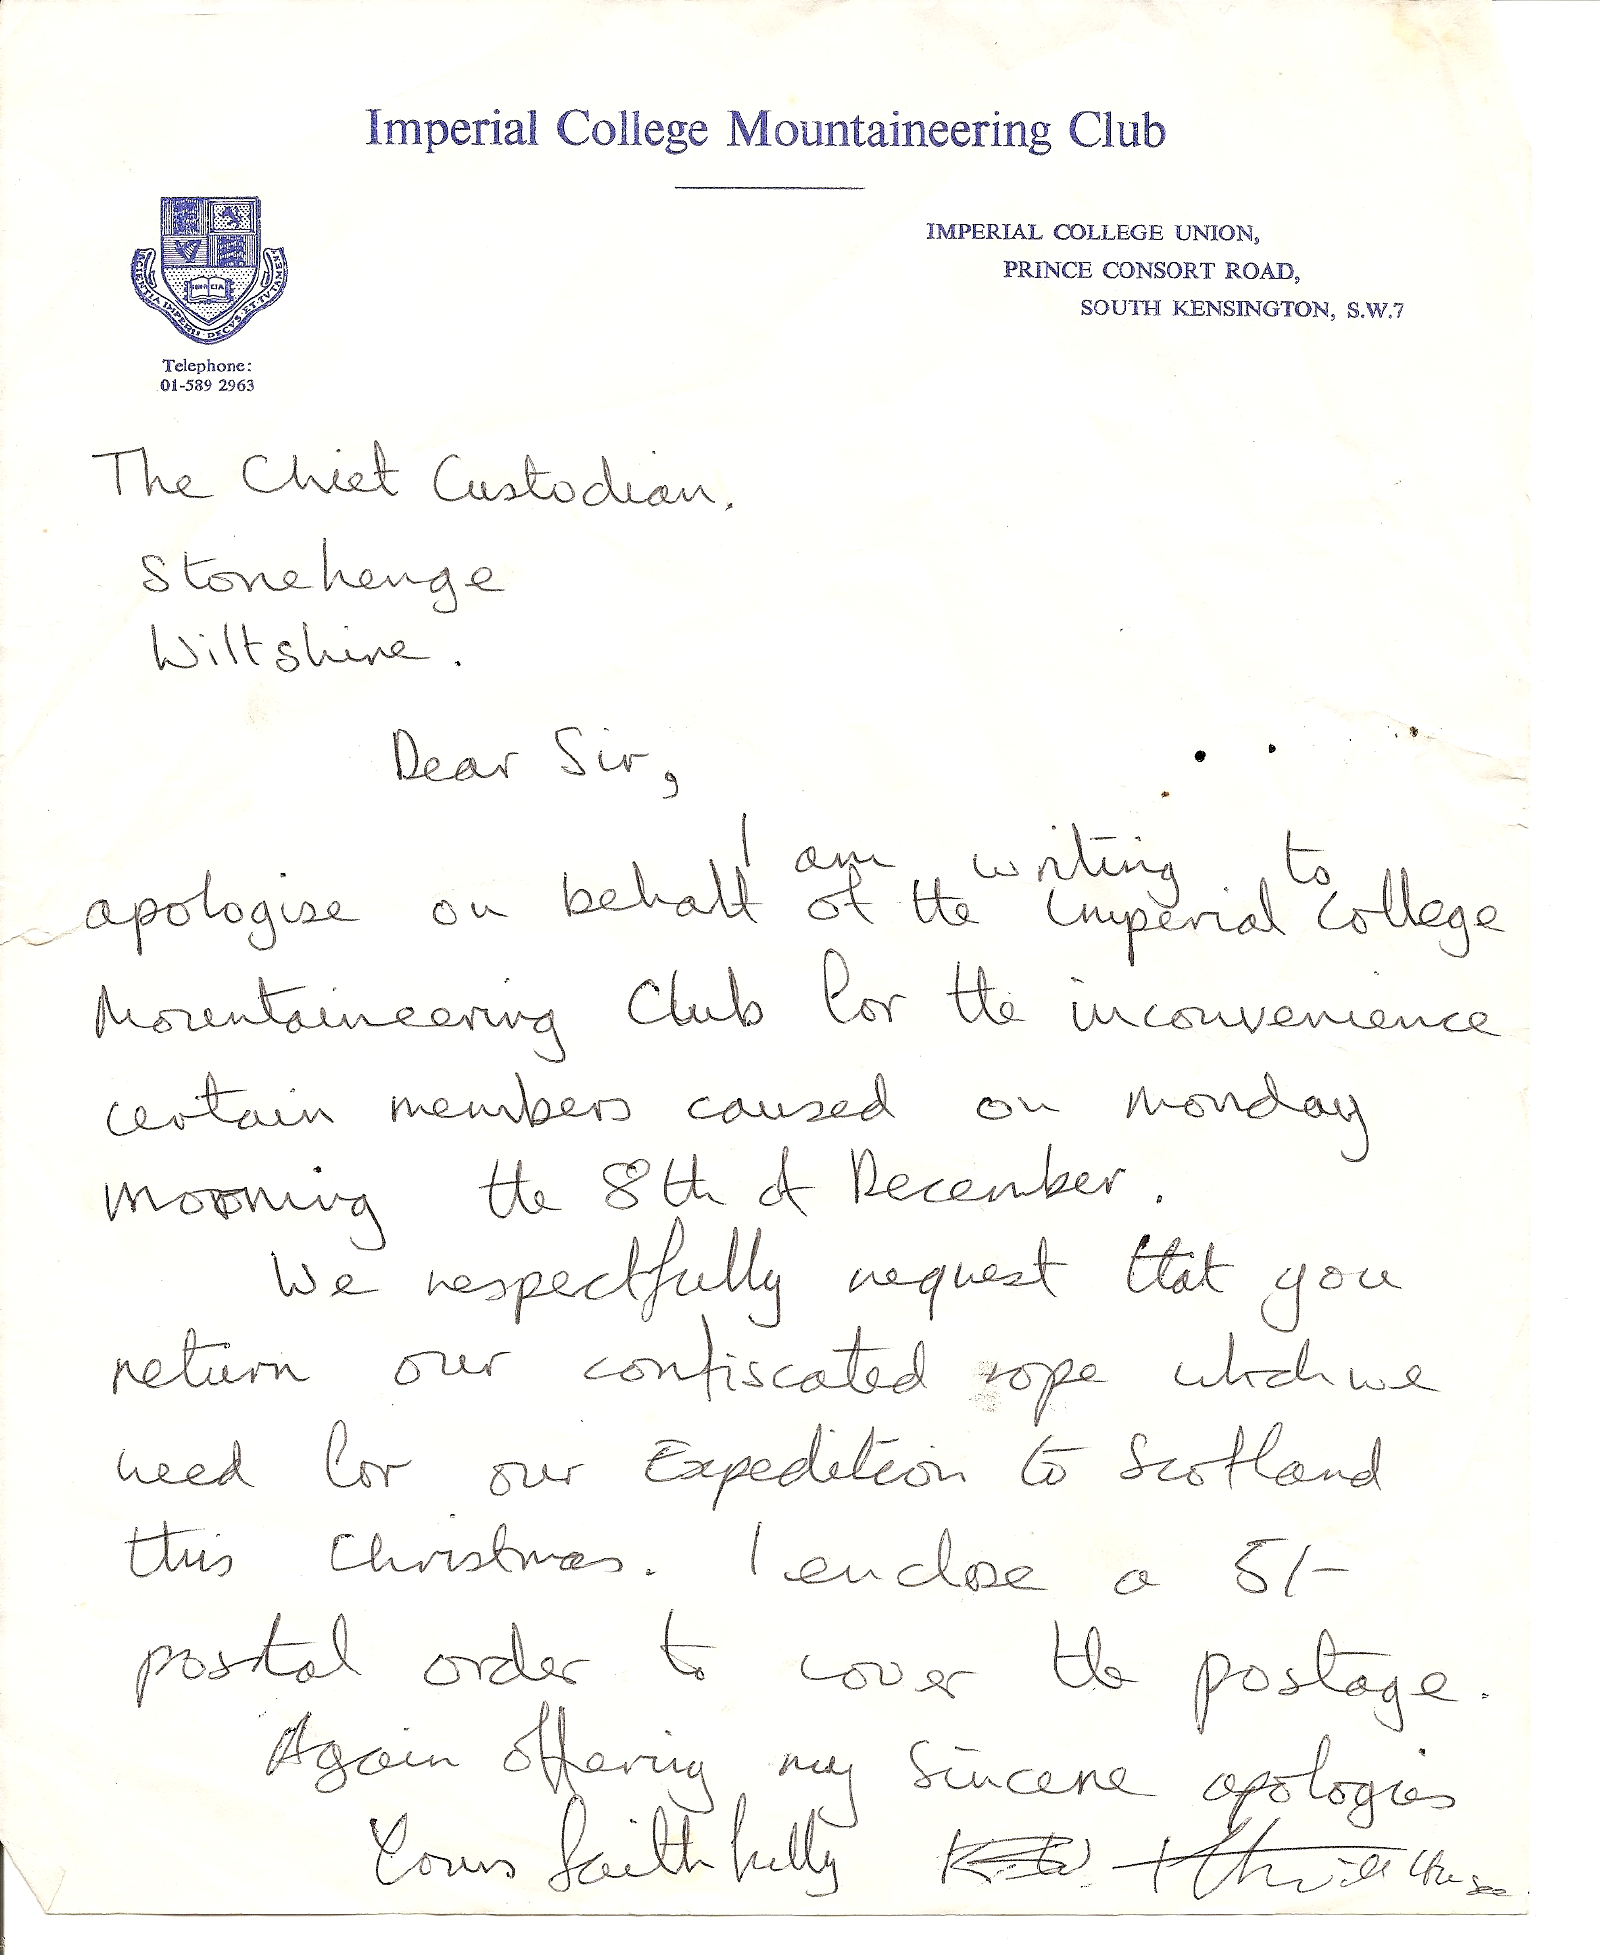 Imperial College Mountaineering Club
IMPERIAL COLLEGE UNION,
PRINCE CONSORT ROAD,
SOUTH KENSINGTON, S.W.7
SCIENTIA IMPERII DECVS ET TVTAMEN
Telephone:
01-589 2963
The Chief Custodian.
Stonehenge
Wiltshire.
Dear Sir,
I am writing to
apologise on behalf of the Imperial College
Mountaineering Club for the inconvenience
certain members caused on Monday
morning the 8th of December.
We respectfully request that you
return our confiscated rope which we
need for our Expedition to Scotland
this Christmas. I enclose a 5/-
postal order to cover the postage.
Again offering my sincere apologies
Yours faithfully